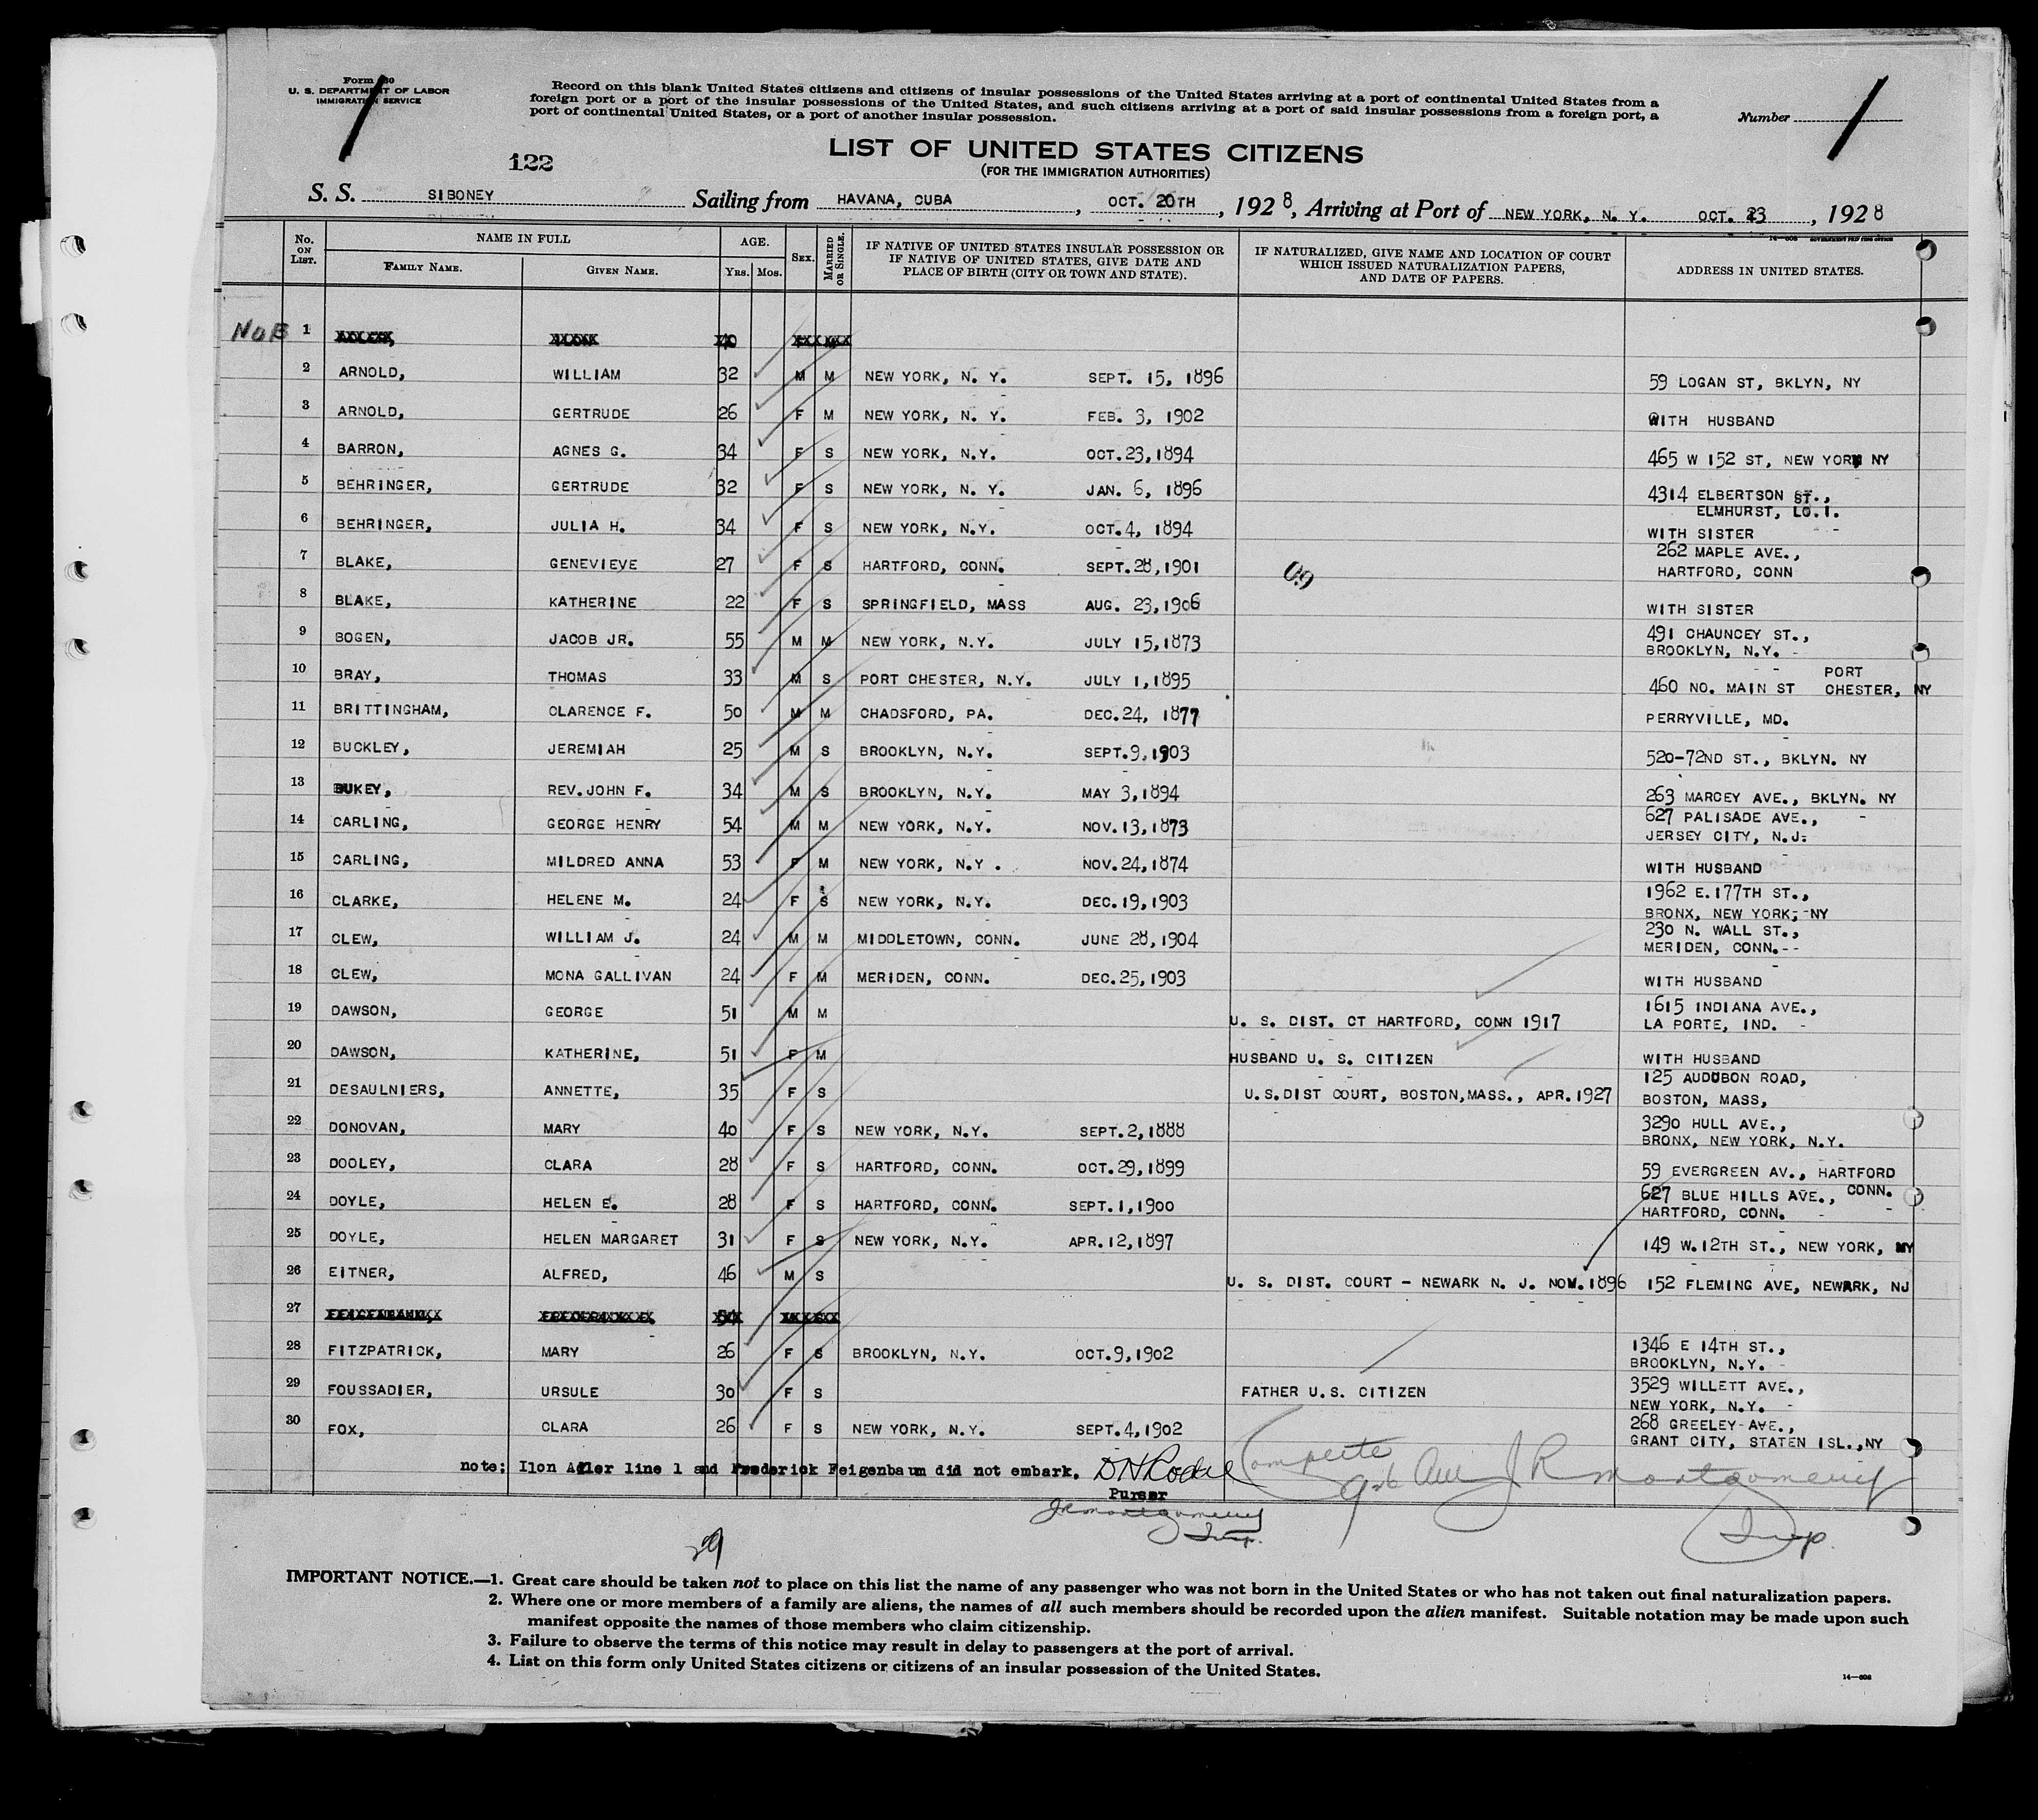 Form 630
U. S. DEPARTMENT OF LABOR
IMMIGRATION SERVICE
Record on this blank United States citizens and citizens of insular possessions of the United States arriving at a port of continental United States from a
foreign port or a port of the insular possessions of the United States, and such citizens arriving at a port of said insular possessions from a foreign port, a
port of continental United States, or a port of another insular possession.
Number
122
LIST OF UNITED STATES CITIZENS
(FOR THE IMMIGRATION AUTHORITIES)
S. S. SIBONEY Sailing from HAVANA, CUBA, OCT. 20TH, 1928, Arriving at Port of NEW YORK, N. Y. OCT. 23, 1928
14—608 GOVERNMENT PRINTING OFFICE
No. ON LIST. NAME IN FULL FAMILY NAME. GIVEN NAME. AGE. Yrs. Mos. SEX. MARRIED OR SINGLE. IF NATIVE OF UNITED STATES INSULAR POSSESSION OR IF NATIVE OF UNITED STATES, GIVE DATE AND PLACE OF BIRTH (CITY OR TOWN AND STATE). IF NATURALIZED, GIVE NAME AND LOCATION OF COURT WHICH ISSUED NATURALIZATION PAPERS, AND DATE OF PAPERS. ADDRESS IN UNITED STATES.
NOB 1
2 ARNOLD, WILLIAM 32 M M NEW YORK, N. Y. SEPT. 15, 1896 59 LOGAN ST, BKLYN, NY
3 ARNOLD, GERTRUDE 26 F M NEW YORK, N. Y. FEB. 3, 1902 WITH HUSBAND
4 BARRON, AGNES G. 34 F S NEW YORK, N.Y. OCT.23,1894 465 W 152 ST, NEW YORK NY
5 BEHRINGER, GERTRUDE 32 F S NEW YORK, N. Y. JAN. 6, 1896 4314 ELBERTSON ST.,
ELMHURST, LO.I.
6 BEHRINGER, JULIA H. 34 F S NEW YORK, N.Y. OCT.4, 1894 WITH SISTER
7 BLAKE, GENEVIEVE 27 F S HARTFORD, CONN. SEPT.28,1901 262 MAPLE AVE.,
HARTFORD, CONN
60
8 BLAKE, KATHERINE 22 F S SPRINGFIELD, MASS AUG. 23,1906 WITH SISTER
9 BOGEN, JACOB JR. 55 M M NEW YORK, N.Y. JULY 15,1873 491 CHAUNCEY ST.,
BROOKLYN, N.Y.
10 BRAY, THOMAS 33 M S PORT CHESTER, N.Y. JULY 1,1895 460 NO. MAIN ST PORT
CHESTER, NY
11 BRITTINGHAM, CLARENCE F. 50 M M CHADSFORD, PA. DEC.24, 1877 PERRYVILLE, MD.
12 BUCKLEY, JEREMIAH 25 M S BROOKLYN, N.Y. SEPT.9,1903 520-72ND ST., BKLYN. NY
13 BUKEY, REV.JOHN F. 34 M S BROOKLYN, N.Y. MAY 3,1894 263 MARCEY AVE., BKLYN. NY
14 CARLING, GEORGE HENRY 54 M M NEW YORK, N.Y. NOV.13,1873 627 PALISADE AVE.,
JERSEY CITY, N.J.
15 CARLING, MILDRED ANNA 53 F M NEW YORK, N.Y. NOV.24,1874 WITH HUSBAND
16 CLARKE, HELENE M. 24 F S NEW YORK, N.Y. DEC.19,1903 1962 E.177TH ST.,
BRONX, NEW YORK, NY
17 CLEW, WILLIAM J. 24 M M MIDDLETOWN, CONN. JUNE 28,1904 230 N. WALL ST.,
MERIDEN, CONN.--
18 CLEW, MONA GALLIVAN 24 F M MERIDEN, CONN. DEC.25,1903 WITH HUSBAND
19 DAWSON, GEORGE 51 M M U. S. DIST. CT HARTFORD, CONN 1917 1615 INDIANA AVE.,
LA PORTE, IND.
20 DAWSON, KATHERINE, 51 F M HUSBAND U. S. CITIZEN WITH HUSBAND
21 DESAULNIERS, ANNETTE, 35 F S U.S.DIST COURT, BOSTON,MASS., APR.1927 125 AUDUBON ROAD,
BOSTON, MASS,
22 DONOVAN, MARY 40 F S NEW YORK, N.Y. SEPT.2,1888 3290 HULL AVE.,
BRONX, NEW YORK, N.Y.
23 DOOLEY, CLARA 28 F S HARTFORD, CONN. OCT.29,1899 59 EVERGREEN AV., HARTFORD
CONN.
24 DOYLE, HELEN E. 28 F S HARTFORD, CONN. SEPT.1,1900 627 BLUE HILLS AVE.,
HARTFORD, CONN.
25 DOYLE, HELEN MARGARET 31 F S NEW YORK, N.Y. APR.12,1897 149 W.12TH ST., NEW YORK, NY
26 EITNER, ALFRED, 46 M S U. S. DIST. COURT - NEWARK N. J. NOV.1896 152 FLEMING AVE, NEWARK, NJ
27
28 FITZPATRICK, MARY 26 F S BROOKLYN, N.Y. OCT.9,1902 1346 E 14TH ST.,
BROOKLYN, N.Y.
29 FOUSSADIER, URSULE 30 F S FATHER U.S. CITIZEN 3529 WILLETT AVE.,
NEW YORK, N.Y.
30 FOX, CLARA 26 F S NEW YORK, N.Y. SEPT.4,1902 268 GREELEY-AVE.,
GRANT CITY, STATEN ISL.,NY
note: Ilon Adler line 1 and Frederick Feigenbaum did not embark.
Purser
Complete
J R Montgomery
Insp.
JR Montgomery
Insp.
29
IMPORTANT NOTICE.—1. Great care should be taken not to place on this list the name of any passenger who was not born in the United States or who has not taken out final naturalization papers.
2. Where one or more members of a family are aliens, the names of all such members should be recorded upon the alien manifest. Suitable notation may be made upon such
manifest opposite the names of those members who claim citizenship.
3. Failure to observe the terms of this notice may result in delay to passengers at the port of arrival.
4. List on this form only United States citizens or citizens of an insular possession of the United States.
14—608